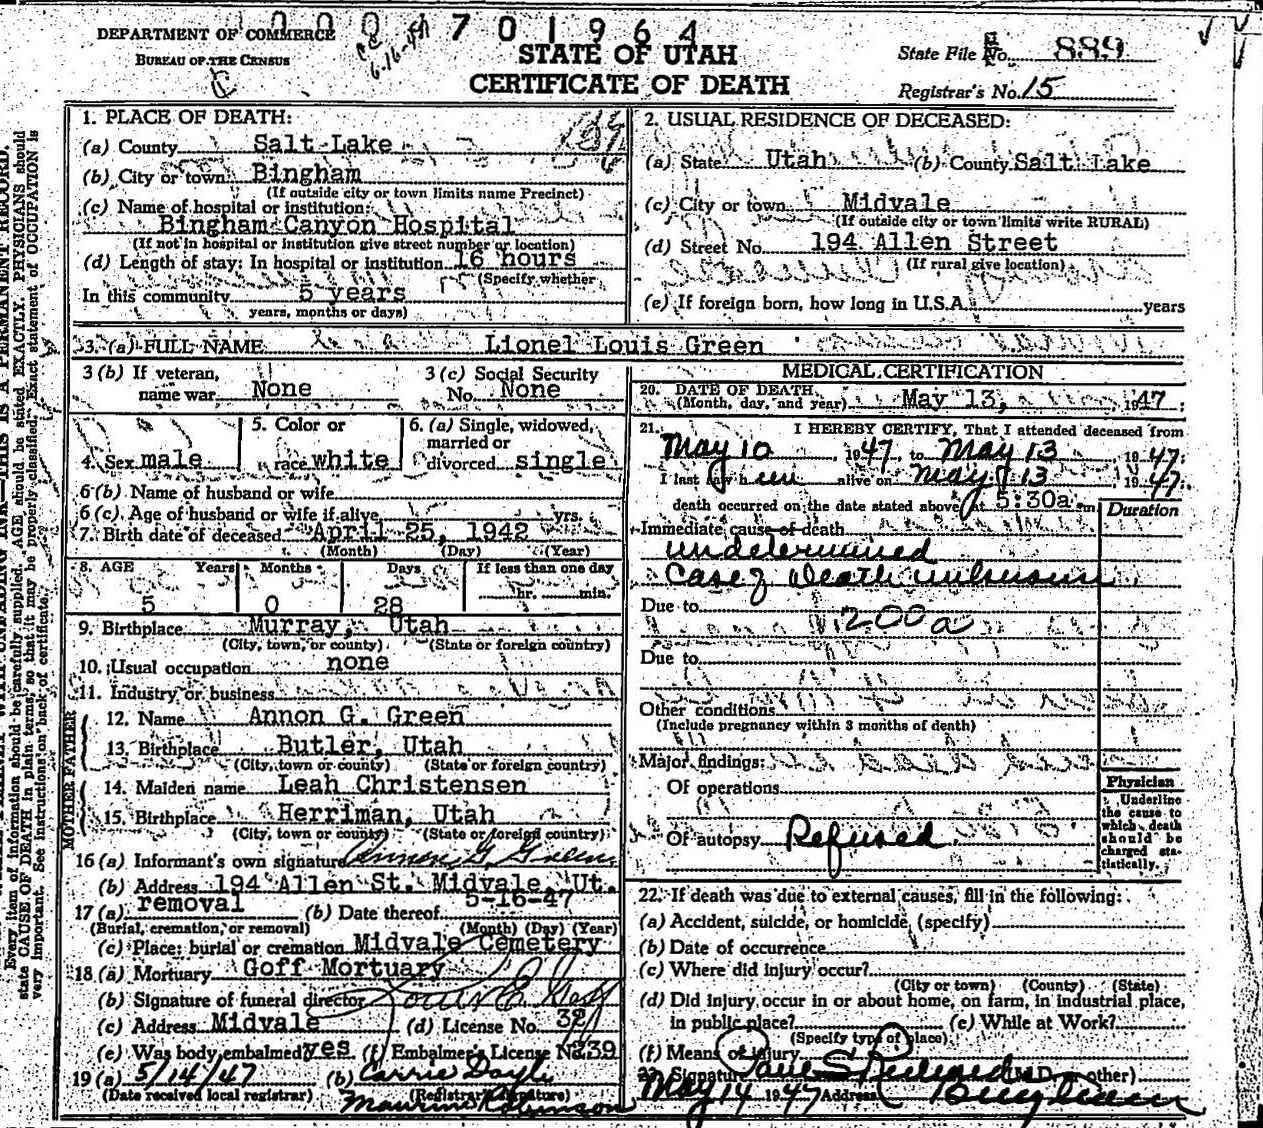 701964
DEPARTMENT OF COMMERCE
BUREAU OF THE CENSUS
STATE OF UTAH
CERTIFICATE OF DEATH
State File No. 889
Registrar's No. 15
1. PLACE OF DEATH:
(a) County Salt Lake
(b) City or town Bingham
(If outside city or town limits name Precinct)
(c) Name of hospital or institution:
Bingham Canyon Hospital
(If not in hospital or institution give street number or location)
(d) Length of stay: In hospital or institution 16 hours
(Specify whether
In this community 5 years
years, months or days)
2. USUAL RESIDENCE OF DECEASED:
(a) State Utah (b) County Salt Lake
(c) City or town Midvale
(If outside city or town limits write RURAL)
(d) Street No. 194 Allen Street
(If rural give location)
(e) If foreign born, how long in U.S.A. years
3. (a) FULL NAME Lionel Louis Green
3 (b) If veteran, name war None
3 (c) Social Security No. None
4. Sex male
5. Color or race white
6. (a) Single, widowed, married or divorced single
6 (b) Name of husband or wife
6 (c) Age of husband or wife if alive yrs.
7. Birth date of deceased April 25, 1942
(Month) (Day) (Year)
8. AGE Years Months Days If less than one day
5 0 28 hr. min.
9. Birthplace Murray, Utah
(City, town, or county) (State or foreign country)
10. Usual occupation none
11. Industry or business
FATHER
12. Name Annon G. Green
13. Birthplace Butler, Utah
(City, town or county) (State or foreign country)
MOTHER
14. Maiden name Leah Christensen
15. Birthplace Herriman, Utah
(City, town or county) (State or foreign country)
16 (a) Informant's own signature Annon G. Green
(b) Address 194 Allen St. Midvale, Ut.
17 (a) removal (b) Date thereof 5-16-47
(Burial, cremation, or removal) (Month) (Day) (Year)
(c) Place: burial or cremation Midvale Cemetery
18 (a) Mortuary Goff Mortuary
(b) Signature of funeral director
(c) Address Midvale (d) License No. 32
(e) Was body embalmed yes (f) Embalmer's License No. 239
19 (a) 5/14/47 (b) Carrie Doyle
(Date received local registrar) (Registrar's signature)
Maurine Robinson
MEDICAL CERTIFICATION
20. DATE OF DEATH
(Month, day, and year) May 13, 1947
21. I HEREBY CERTIFY, That I attended deceased from
May 10, 1947, to May 13 1947;
I last saw h im alive on May 13 1947;
death occurred on the date stated above at 5:30a m.
Duration
Immediate cause of death
undetermined
Case of Death unknown
Due to 200a
Due to
Other conditions
(Include pregnancy within 3 months of death)
Major findings:
Of operations
Of autopsy Refused
Physician
Underline the cause to which death should be charged statistically.
22. If death was due to external causes, fill in the following:
(a) Accident, suicide, or homicide (specify)
(b) Date of occurrence
(c) Where did injury occur?
(City or town) (County) (State)
(d) Did injury occur in or about home, on farm, in industrial place,
in public place? (e) While at Work?
(Specify type of place)
(f) Means of injury
23. Signature Paul S Richards (M.D. or other)
May 14 1947 Address Bingham
Every item of information should be carefully supplied. AGE should be stated EXACTLY. PHYSICIANS should
state CAUSE OF DEATH in plain terms, so that it may be properly classified. Exact statement of OCCUPATION is
very important. See instructions on back of certificate.
THIS IS A PERMANENT RECORD.